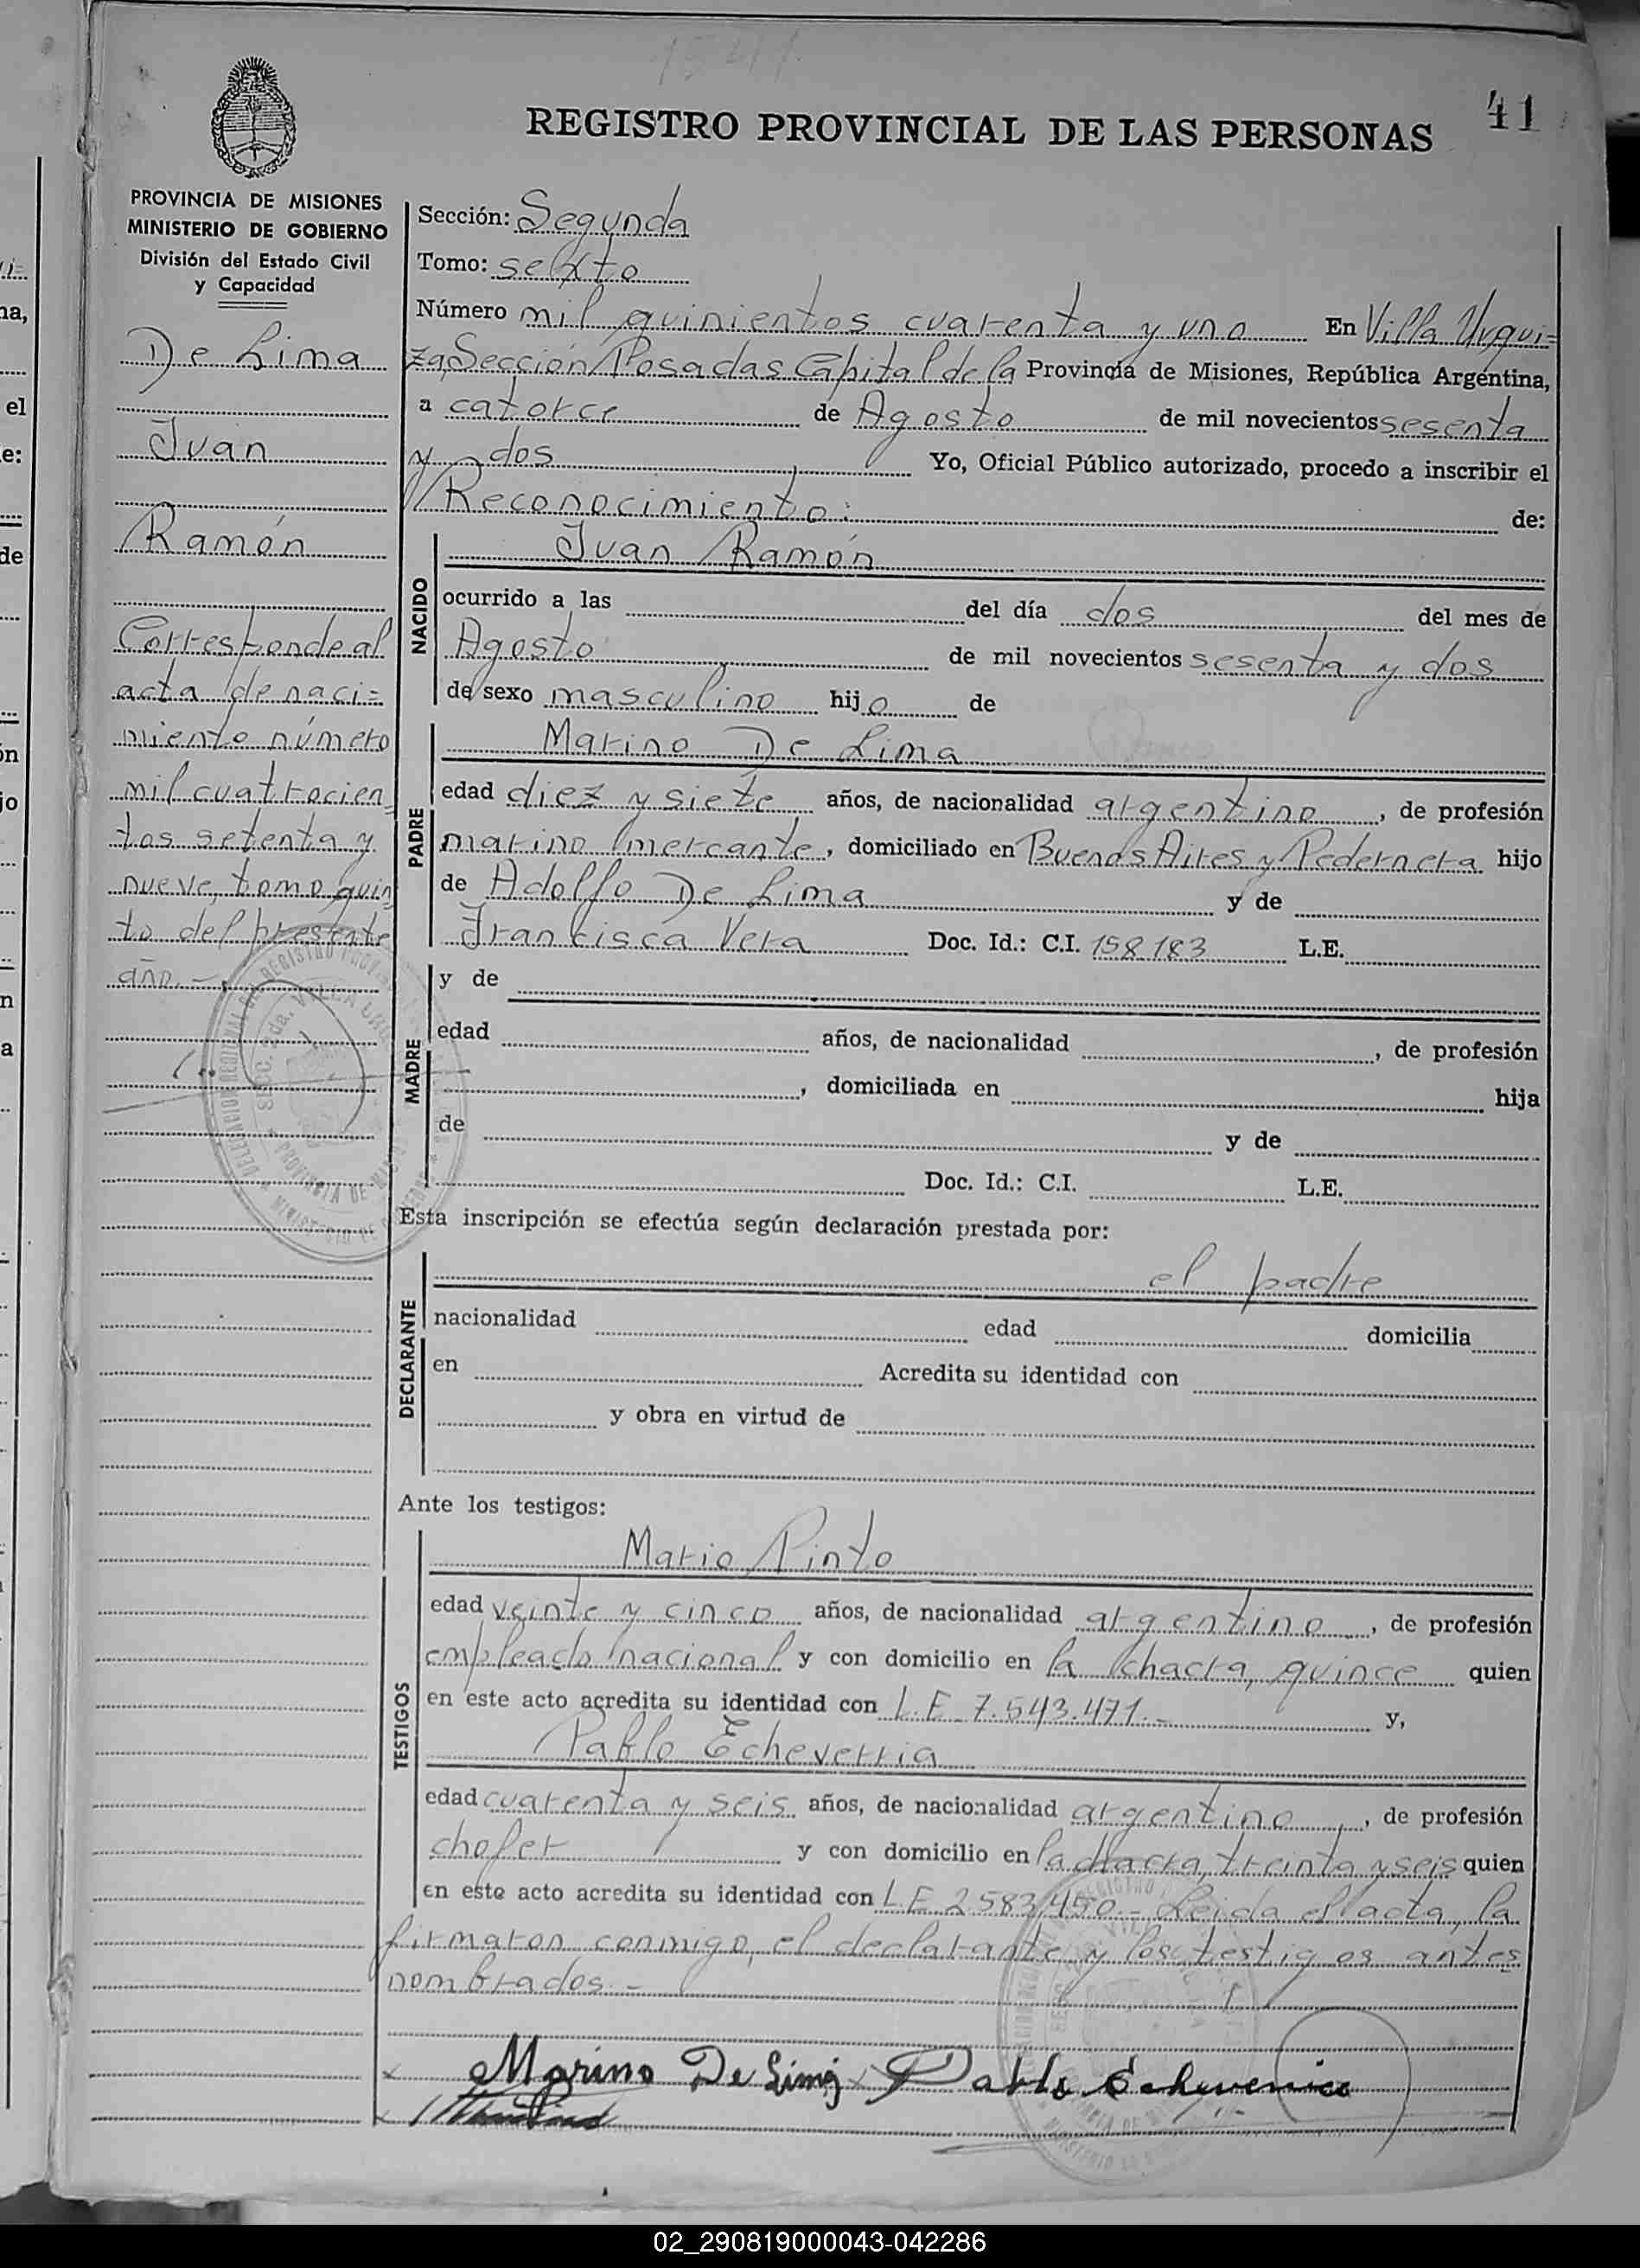 41
REGISTRO PROVINCIAL DE LAS PERSONAS
PROVINCIA DE MISIONES
MINISTERIO DE GOBIERNO
División del Estado Civil
y Capacidad
De Lima
Juan
Ramón
Corresponde al
acta de naci=
miento número
mil cuatrocien
tos setenta y
nueve, tomo quin
to del presente
año.-
Sección: Segunda
Tomo: sexto
Número mil quinientos cuarenta y uno En Villa Urqui=
za, Sección Posadas Capital de la Provincia de Misiones, República Argentina,
a catorce de Agosto de mil novecientos sesenta
y dos Yo, Oficial Público autorizado, procedo a inscribir el
Reconocimiento: de:
NACIDO
Juan Ramón
ocurrido a las del día dos del mes de
Agosto de mil novecientos sesenta y dos
de sexo masculino hijo de
PADRE
Marino De Lima
edad diez y siete años, de nacionalidad argentino, de profesión
marino mercante, domiciliado en Buenos Aires y Pedernera hijo
de Adolfo De Lima y de
Francisca Vera Doc. Id.: C.I. 158183 L.E.
MADRE
y de
edad años, de nacionalidad , de profesión
, domiciliada en hija
de y de
Doc. Id.: C.I. L.E.
Esta inscripción se efectúa según declaración prestada por:
DECLARANTE
el padre
nacionalidad edad domicilia
en Acredita su identidad con
y obra en virtud de
Ante los testigos:
TESTIGOS
Mario Pinto
edad veinte y cinco años, de nacionalidad argentino, de profesión
empleado nacional y con domicilio en la chacra, quince quien
en este acto acredita su identidad con L.E. 7.543.471.- y,
Pablo Echeverria
edad cuarenta y seis años, de nacionalidad argentino, de profesión
chofer y con domicilio en la chacra, treinta y seis quien
en este acto acredita su identidad con L.E 2583450.- Leida el acta, la
firmaron conmigo, el declarante y los testigos antes
nombrados.-
Marino De Lima Pablo Echeverria
02_290819000043-042286